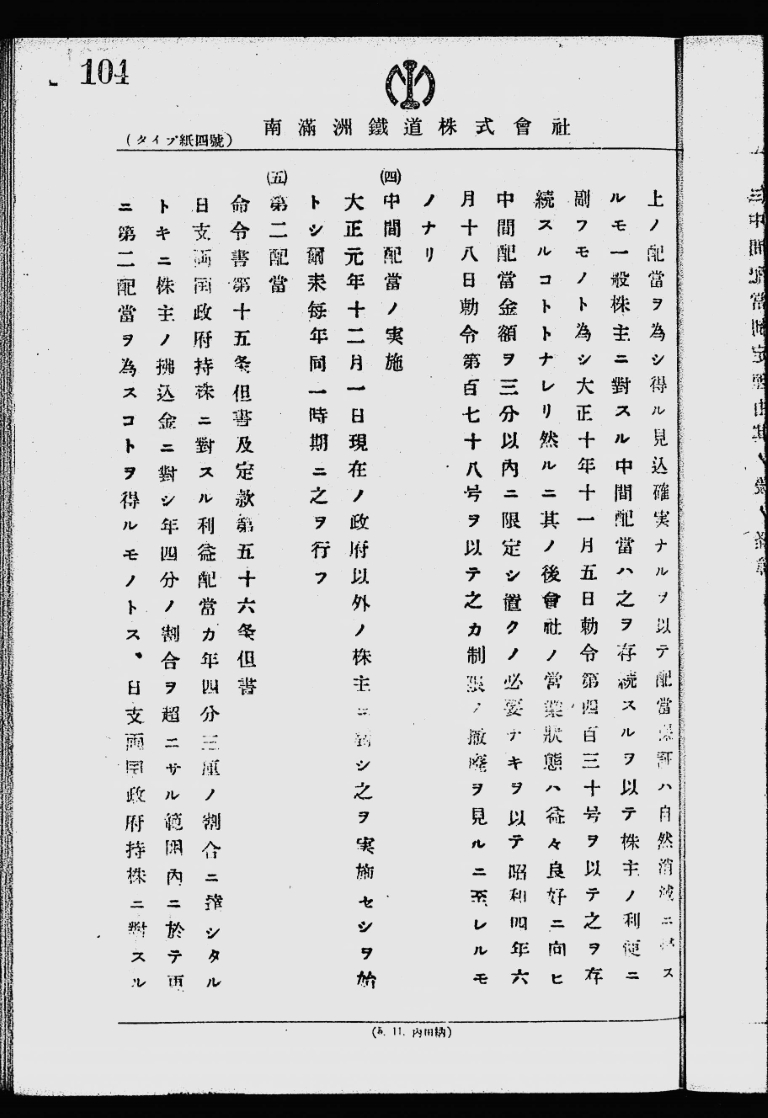 104
南滿洲鐵道株式會社
(タイプ紙四號)
上ノ配當ヲ為シ得ル見込確実ナルヲ以テ配當保証ハ自然消滅ニ帰ス
ルモ一般株主ニ對スル中間配當ハ之ヲ存続スルヲ以テ株主ノ利便ニ
副フモノト為シ大正十年十一月五日勅令第四百三十号ヲ以テ之ヲ存
続スルコトトナレリ然ルニ其ノ後會社ノ営業狀態ハ益々良好ニ向ヒ
中間配當金額ヲ三分以內ニ限定シ置クノ必要ナキヲ以テ昭和四年六
月十八日勅令第百七十八号ヲ以テ之カ制限ノ撤廢ヲ見ルニ至レルモ
ノナリ
㈣中間配當ノ実施
大正元年十二月一日現在ノ政府以外ノ株主ニ對シ之ヲ実施セシヲ始
トシ爾来每年同一時期ニ之ヲ行フ
㈤第二配當
命令書第十五条但書及定款第五十六条但書
日支両国政府持株ニ對スル利益配當カ年四分三厘ノ割合ニ達シタル
トキニ株主ノ拂込金ニ對シ年四分ノ割合ヲ超ニサル範囲內ニ於テ更
ニ第二配當ヲ為スコトヲ得ルモノトス、日支両国政府持株ニ對スル
(5. 11. 內田納)